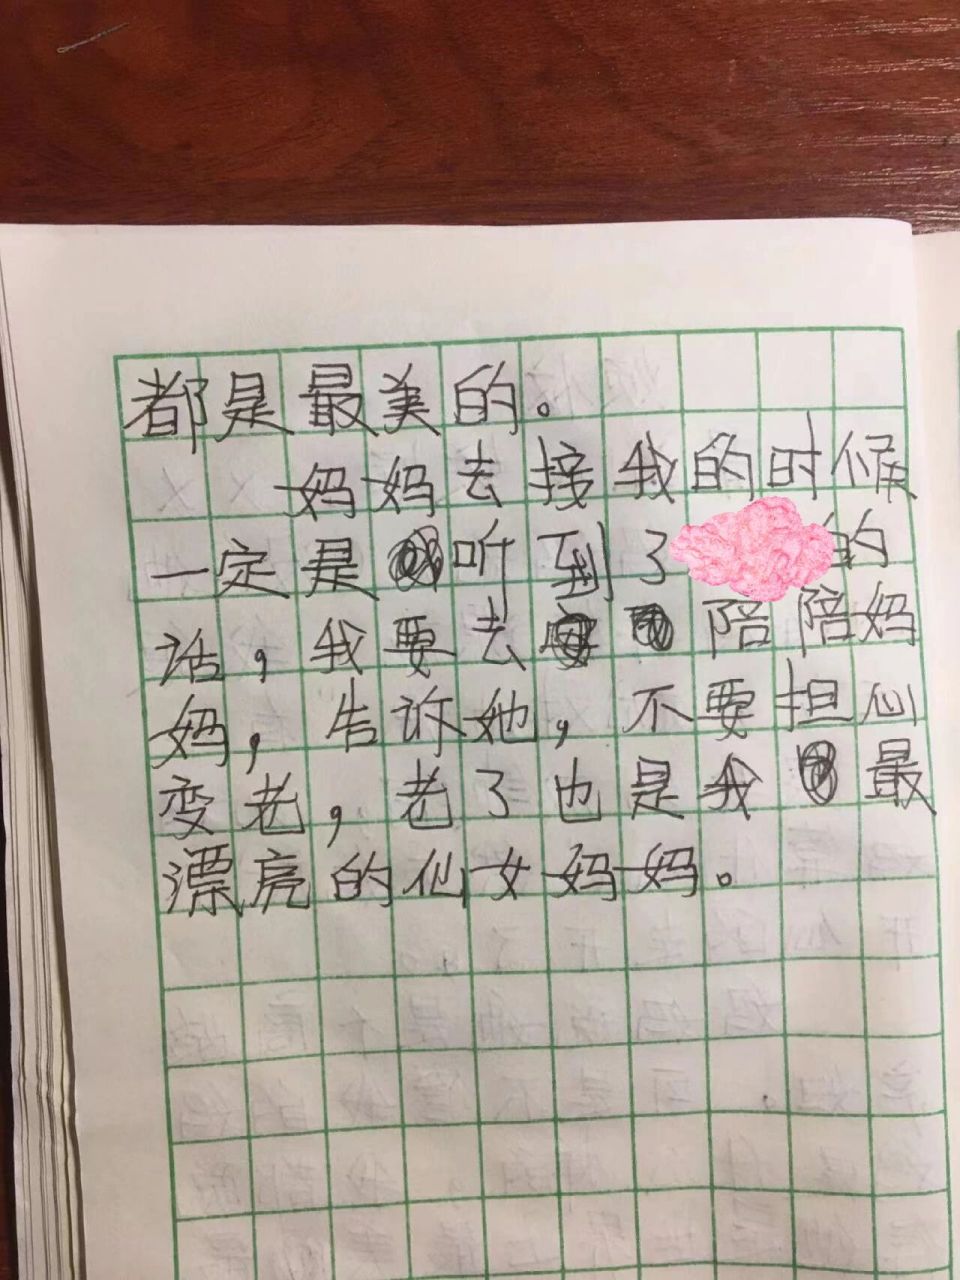 都是最美的。
妈妈去接我的时候
一定是听到了的
话，我要去陪陪妈
妈，告诉她，不要担心
变老，老了也是我最
漂亮的仙女妈妈。